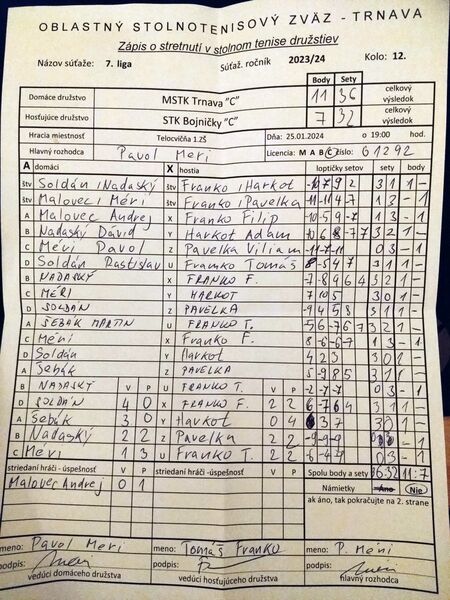 OBLASTNÝ STOLNOTENISOVÝ ZVÄZ - TRNAVA
Zápis o stretnutí v stolnom tenise družstiev
Názov súťaže: 7. liga Súťaž. ročník 2023/24 Kolo: 12.
Body Sety
Domáce družstvo MSTK Trnava "C" 11 36 celkový výsledok
Hosťujúce družstvo STK Bojničky "C" 7 32 celkový výsledok
Hracia miestnosť Telocvičňa 1.ZŠ Dňa: 25.01.2024 o 19:00 hod.
Hlavný rozhodca Pavol Meri Licencia: M A B C číslo: 61292
A domáci X hostia loptičky setov sety body
štv Soldán, Nadaský štv Franko, Harkot 3 1 1 -
štv Malovec, Méri štv Franko, Pavelka 1 3 - 1
A Malovec Andrej X Franko Filip 1 3 - 1
B Nadaský Dávid Y Harkot Adam 3 2 1 -
C Méri Pavol Z Pavelka Viliam 0 3 - 1
D Soldán Rastislav U Franko Tomáš 3 1 1 -
B NADASKÝ X FRANKO F. 3 2 1 -
C MÉRI Y HARKOT 7 10 5 3 0 1 -
D SOLDÁN Z PAVELKA -9 4 5 8 3 1 1 -
A ŠEBÁK MARTIN U FRANKO T. 3 2 1 -
C Méri X Franko F. 1 3 - 1
D Soldán Y Harkot 4 2 3 3 0 1 -
A Šebák Z PAVELKA 3 1 1 -
B NADASKÝ V P U FRANKO T. V P -2 -7 -7 0 3 - 1
D SOLDÁN 4 0 X FRANKO F. 2 2 3 1 1 -
A Šebák 3 0 Y Harkot 0 4 3 0 1 -
B Nadaský 2 2 Z Pavelka 2 2 -9 -9 -9 - 1
C Meri 1 3 U Franko T. 2 2 0 3 - 1
striedaní hráči - úspešnosť V P striedaní hráči -úspešnosť V P Spolu body a sety 36:32 11:7
Malovec Andrej 0 1 Námietky Áno Nie
ak áno, tak pokračujte na 2. strane
meno: Pavol Meri meno: Tomáš Franko meno: P. Méri
podpis: podpis: podpis:
vedúci domáceho družstva vedúci hosťujúceho družstva hlavný rozhodca